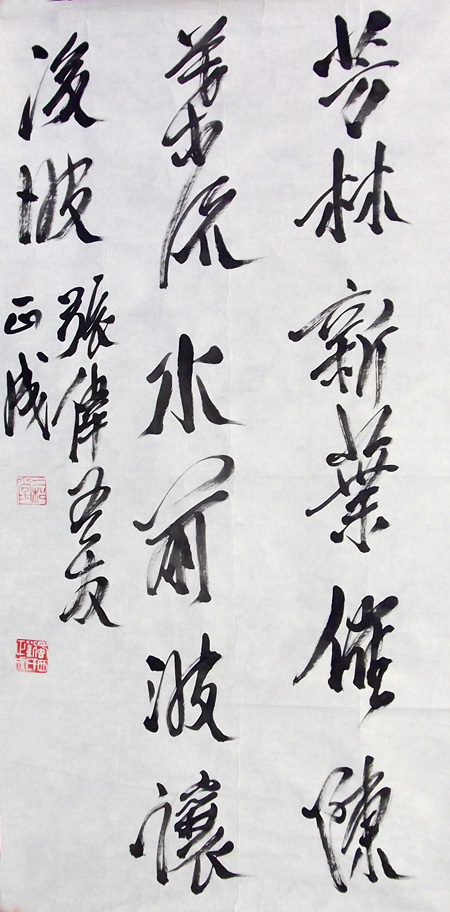 芳林新葉催陳
葉流水前波讓
後波
張偉吾友
正成